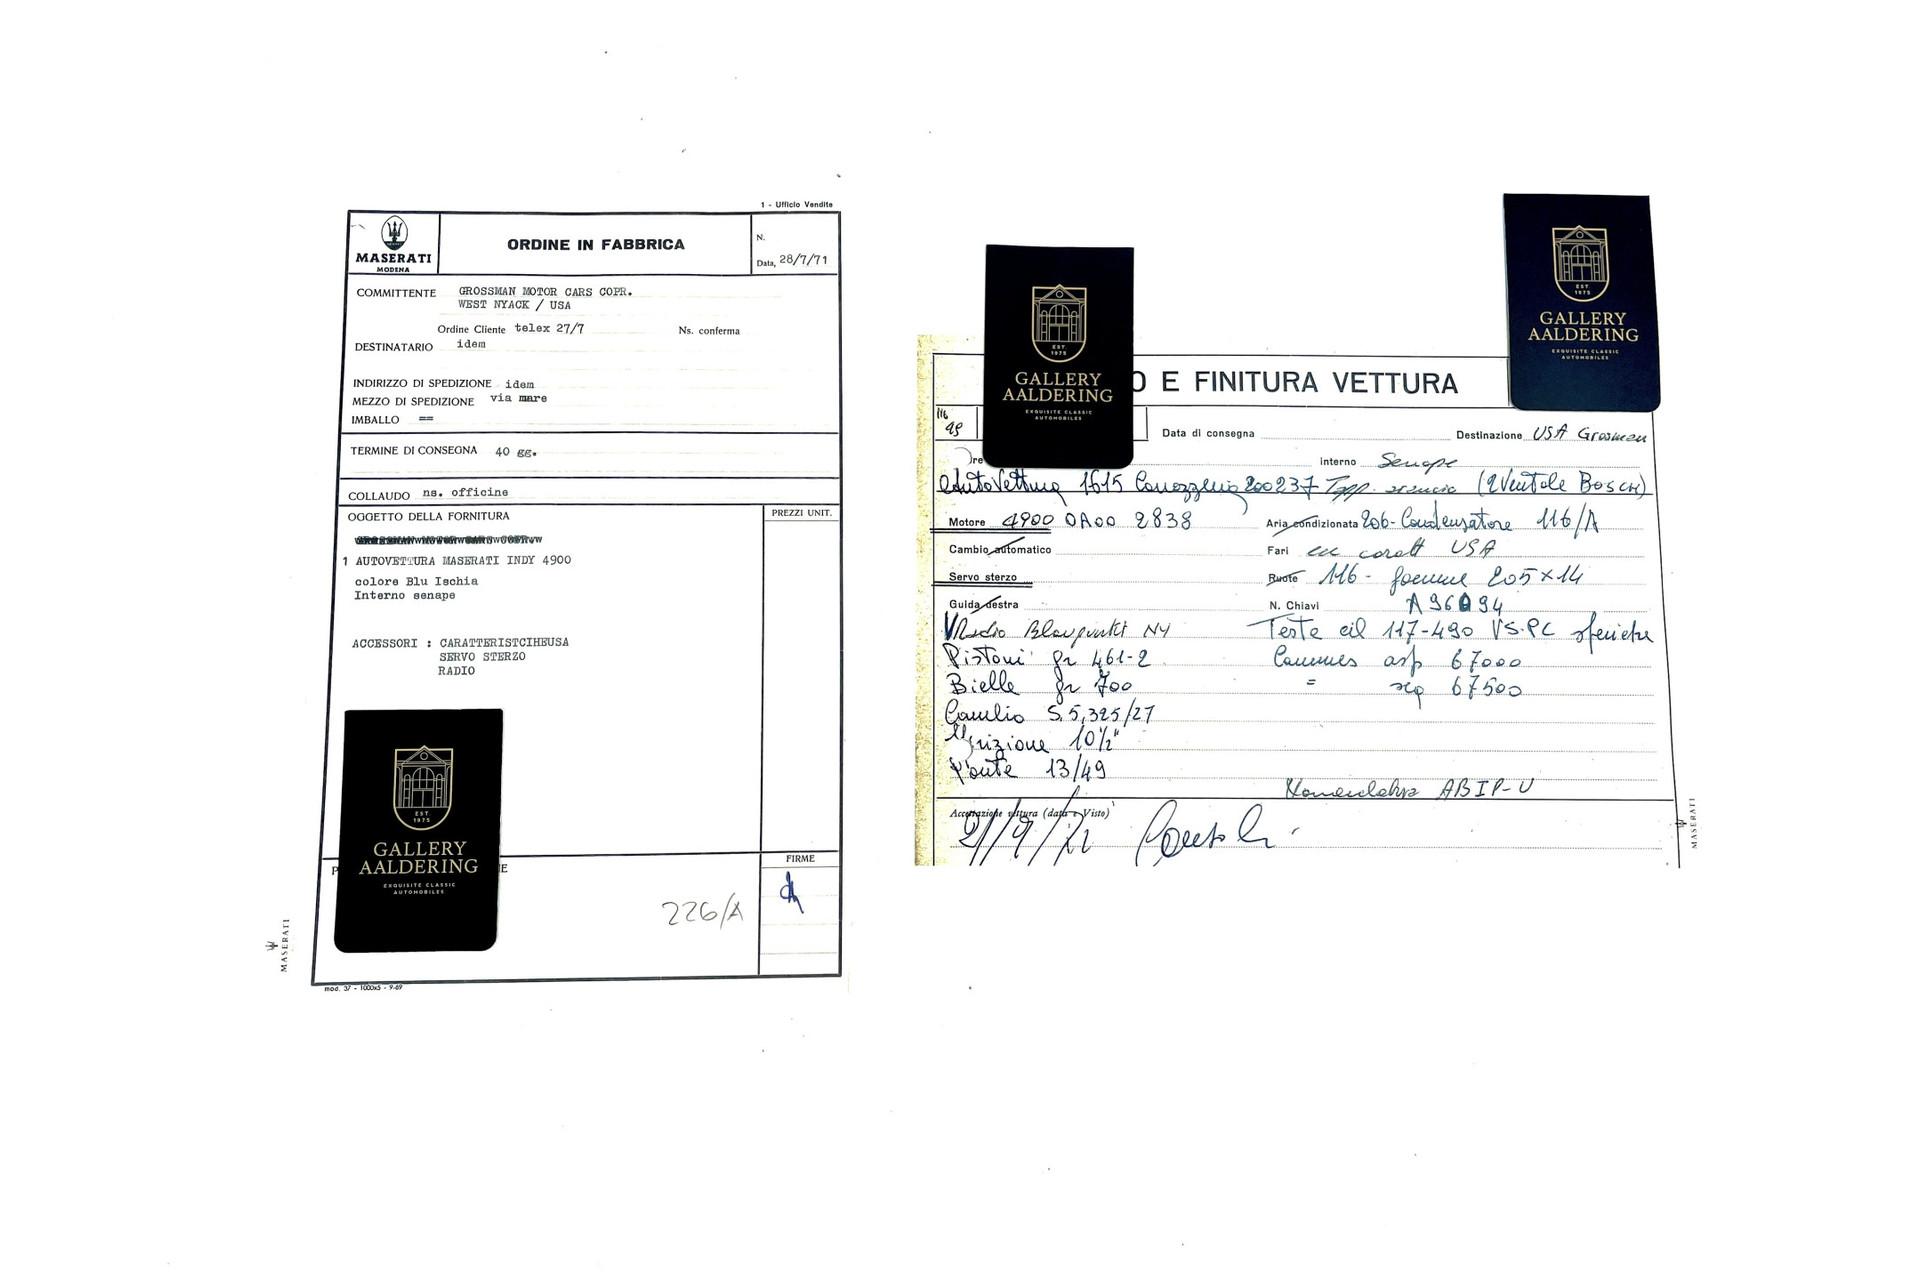 1 - Ufficio Vendite
MASERATI
MODENA
ORDINE IN FABBRICA
N.
Data, 28/7/71
COMMITTENTE GROSSMAN MOTOR CARS COPR.
WEST NYACK / USA
Ordine Cliente telex 27/7 Ns. conferma
DESTINATARIO idem
INDIRIZZO DI SPEDIZIONE idem
MEZZO DI SPEDIZIONE via mare
IMBALLO ==
TERMINE DI CONSEGNA 40 gg.
COLLAUDO ns. officine
OGGETTO DELLA FORNITURA
PREZZI UNIT.
1 AUTOVETTURA MASERATI INDY 4900
colore Blu Ischia
Interno senape
ACCESSORI : CARATTERISTCIHEUSA
SERVO STERZO
RADIO
GALLERY
AALDERING
EXQUISITE CLASSIC
AUTOMOBILES
EST.
1975
FIRME
226/A
MASERATI
mod. 37 - 1000x5 - 9-69
EST.
1975
GALLERY
AALDERING
EXQUISITE CLASSIC
AUTOMOBILES
EST.
1975
GALLERY
AALDERING
EXQUISITE CLASSIC
AUTOMOBILES
O E FINITURA VETTURA
116
49
Data di consegna Destinazione USA Grosman
Interno Senape
AutoVettura 1615 Carozzeria 200237 Tapp. arancio (2 Ventole BOSCH)
Motore 4900 0A00 2838 Aria condizionata 206-Condensatore 116/A
Cambio automatico Fari USA
Servo sterzo Ruote 116 - gomme 205x14
Guida destra N. Chiavi A96094
Radio Blaupunkt NY Teste cil 117-490 VS.PC sferiche
Pistoni gr 461-2 Cammes asp 67000
Bielle gr 700 = 67500
Cambio S.5,325/27
Frizione 10½"
Ponte 13/49
Nomenclatura ABIP-U
Accettazione vettura (data e Visto)
MASERATI